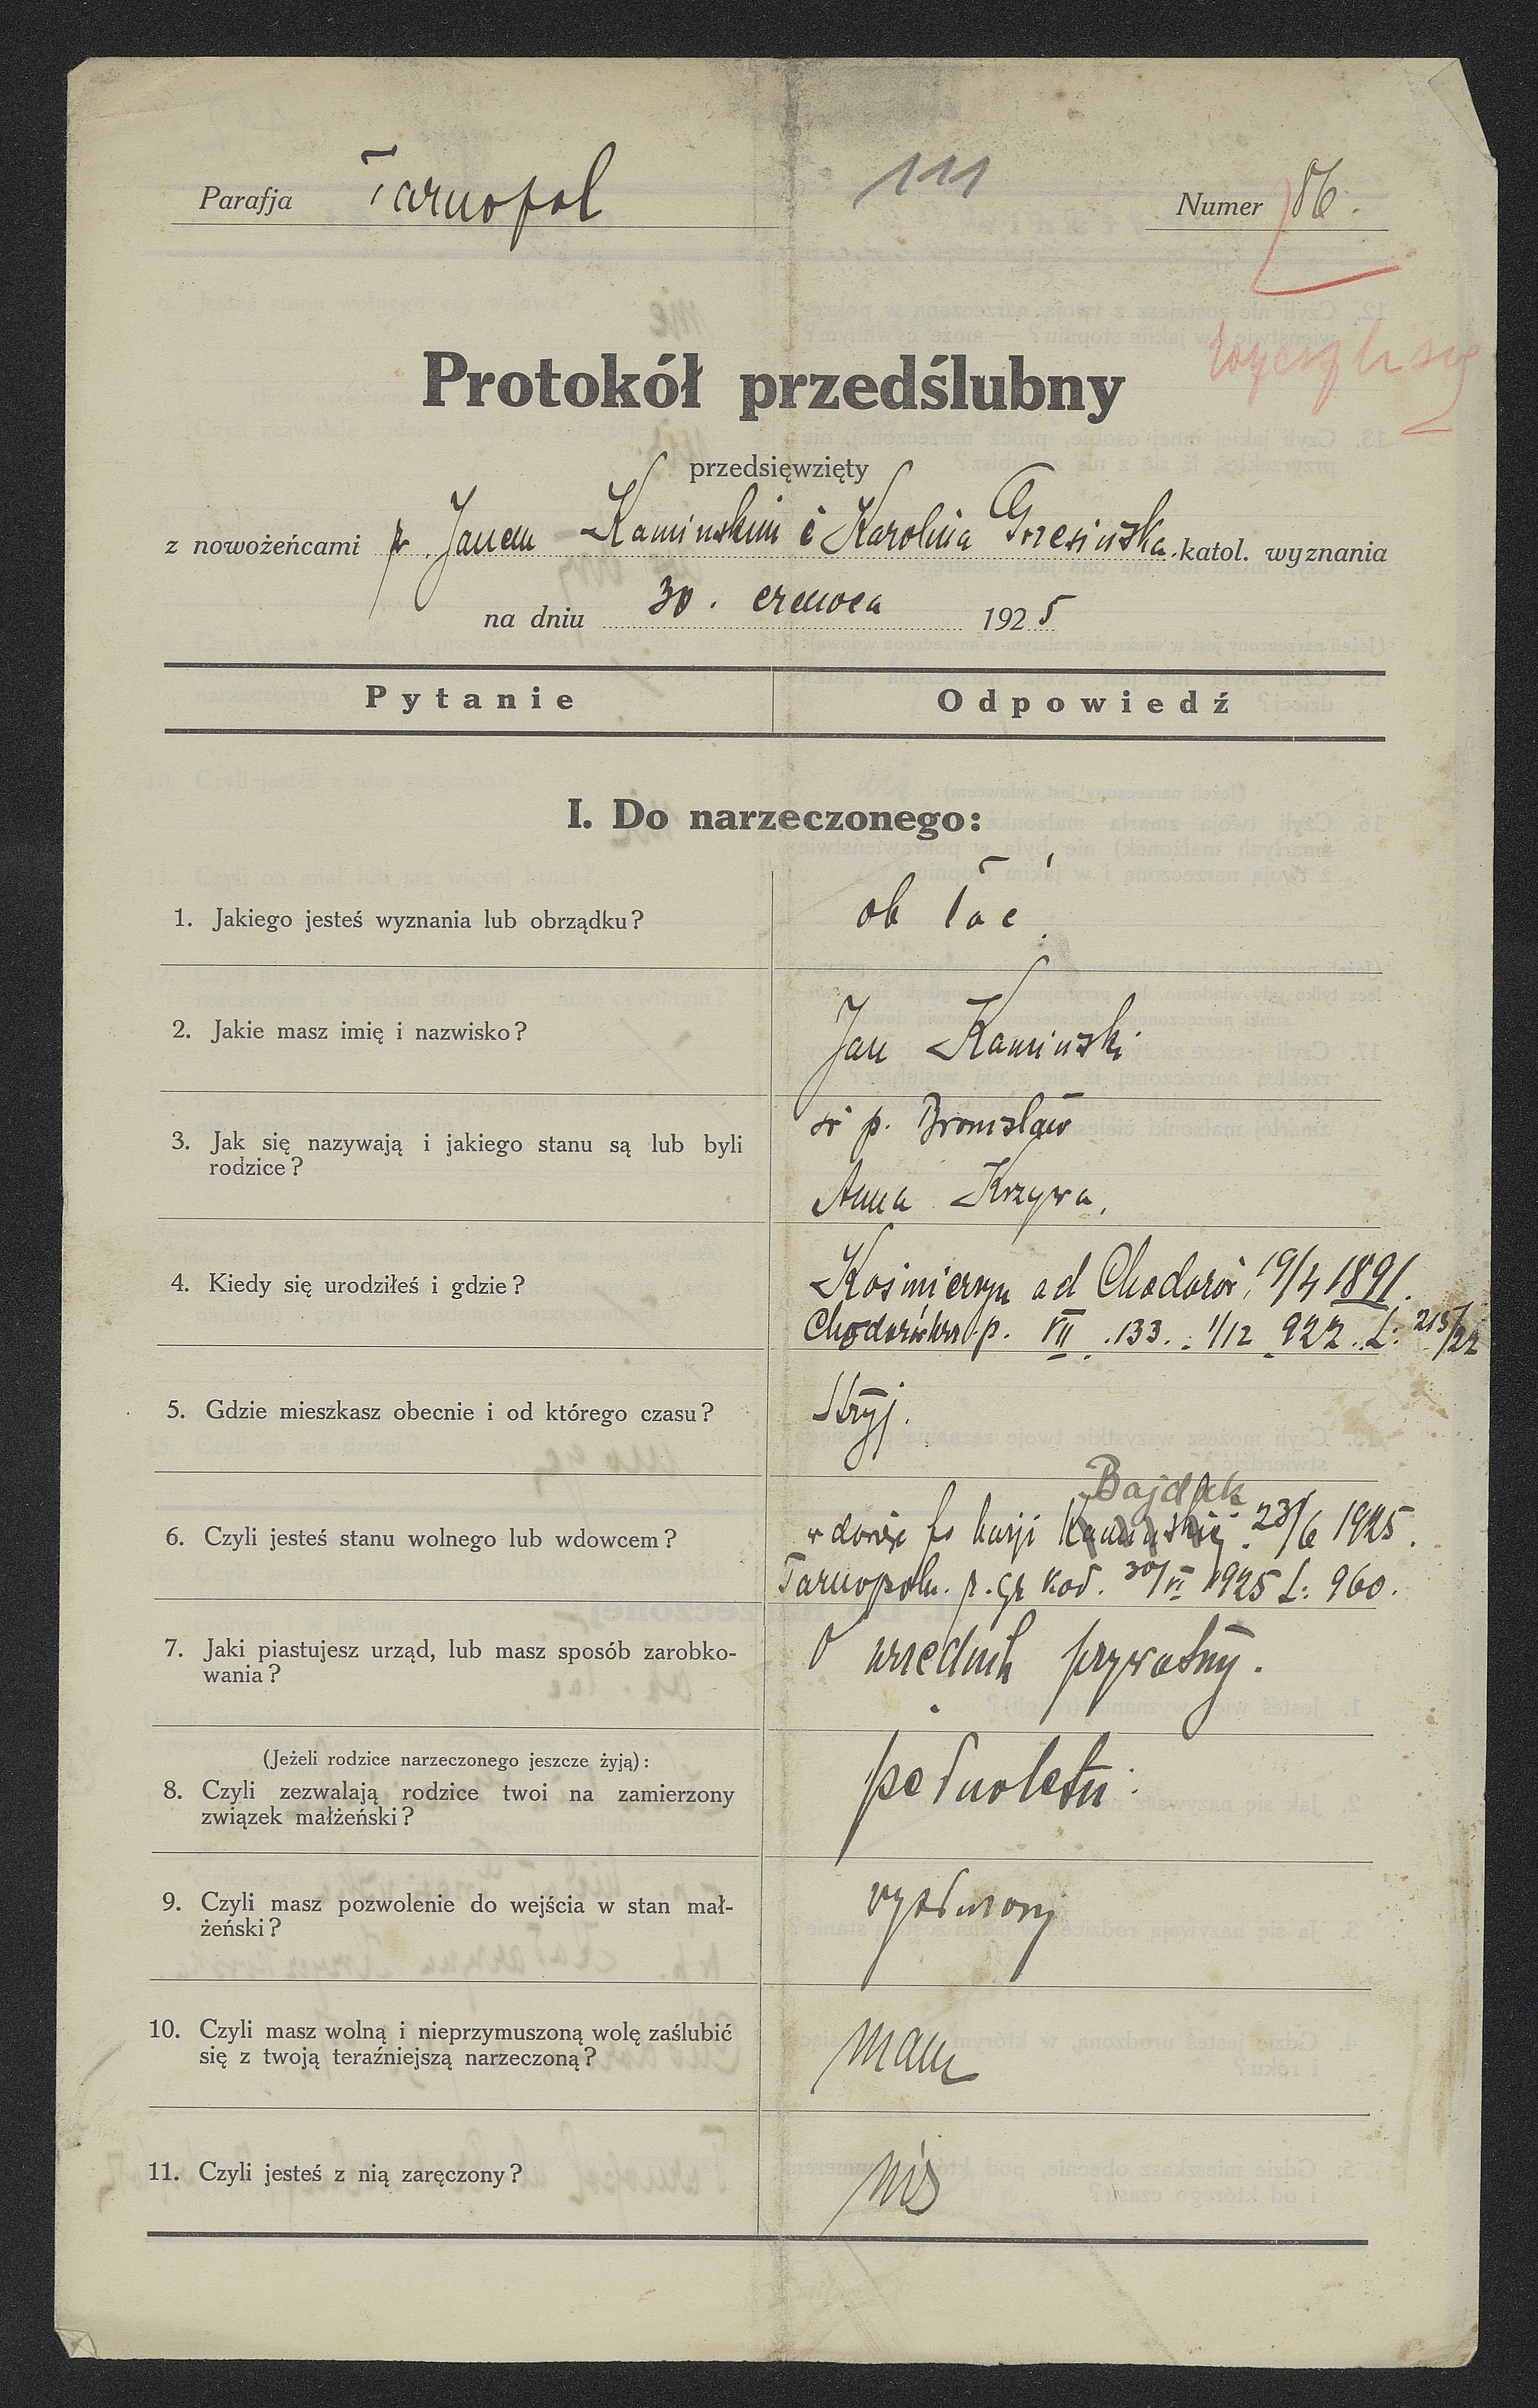 Parafja Tarnopol 111 Numer 86.
Protokół przedślubny
przedsięwzięty
z nowożeńcami p. Janem Kaminskim i Karolina Grzesinska katol. wyznania
na dniu 30. czerwca 1925
Pytanie Odpowiedź
I. Do narzeczonego:
1. Jakiego jesteś wyznania lub obrządku? ob łac.
2. Jakie masz imię i nazwisko? Jan Kaminski
3. Jak się nazywają i jakiego stanu są lub byli
rodzice?
ś p. Bronisław
Anna Krzywa,
4. Kiedy się urodziłeś i gdzie? Kośmierzyn ad Chodorów, 19/4 1891.
p. VII .133. 1/12 922 L: 213/22
5. Gdzie mieszkasz obecnie i od którego czasu? Stryj.
Bajdak
6. Czyli jesteś stanu wolnego lub wdowcem? wdowiec 23/6 1925.
30/VI 1925 L: 960.
7. Jaki piastujesz urząd, lub masz sposób zarobko-
wania?
urzednik prywatny.
(Jeżeli rodzice narzeczonego jeszcze żyją):
8. Czyli zezwalają rodzice twoi na zamierzony
związek małżeński?
pełnoletni
9. Czyli masz pozwolenie do wejścia w stan mał-
żeński?
10. Czyli masz wolną i nieprzymuszoną wolę zaślubić
się z twoją teraźniejszą narzeczoną?
mam
11. Czyli jesteś z nią zaręczony? nie